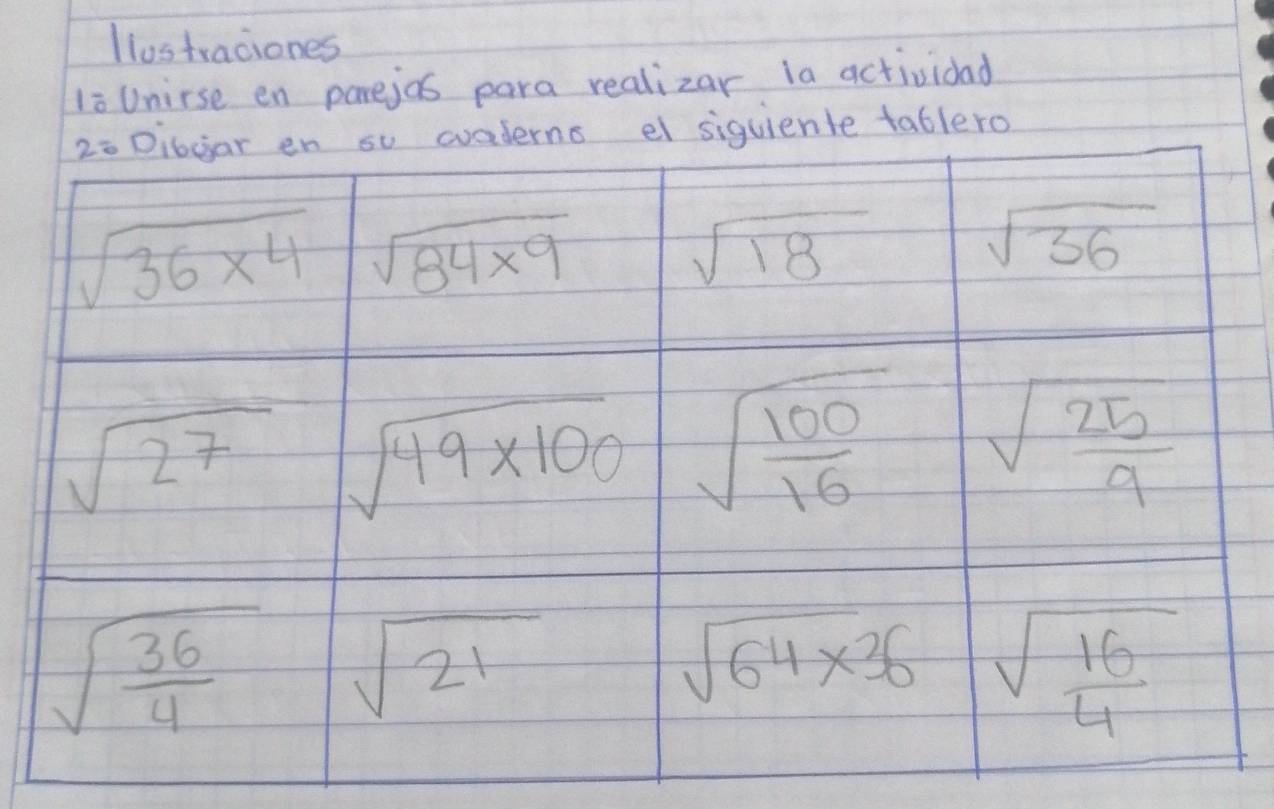 Ilustraciones
1º Unirse en parejas para realizar la actividad
2º Dibujar en su cuaderno el siguiente tablero
√36 x 4 √84 x 9 √18 √36
√27 √49 x 100 √100/16 √25/9
√36/4 √21 √64 x 36 √16/4